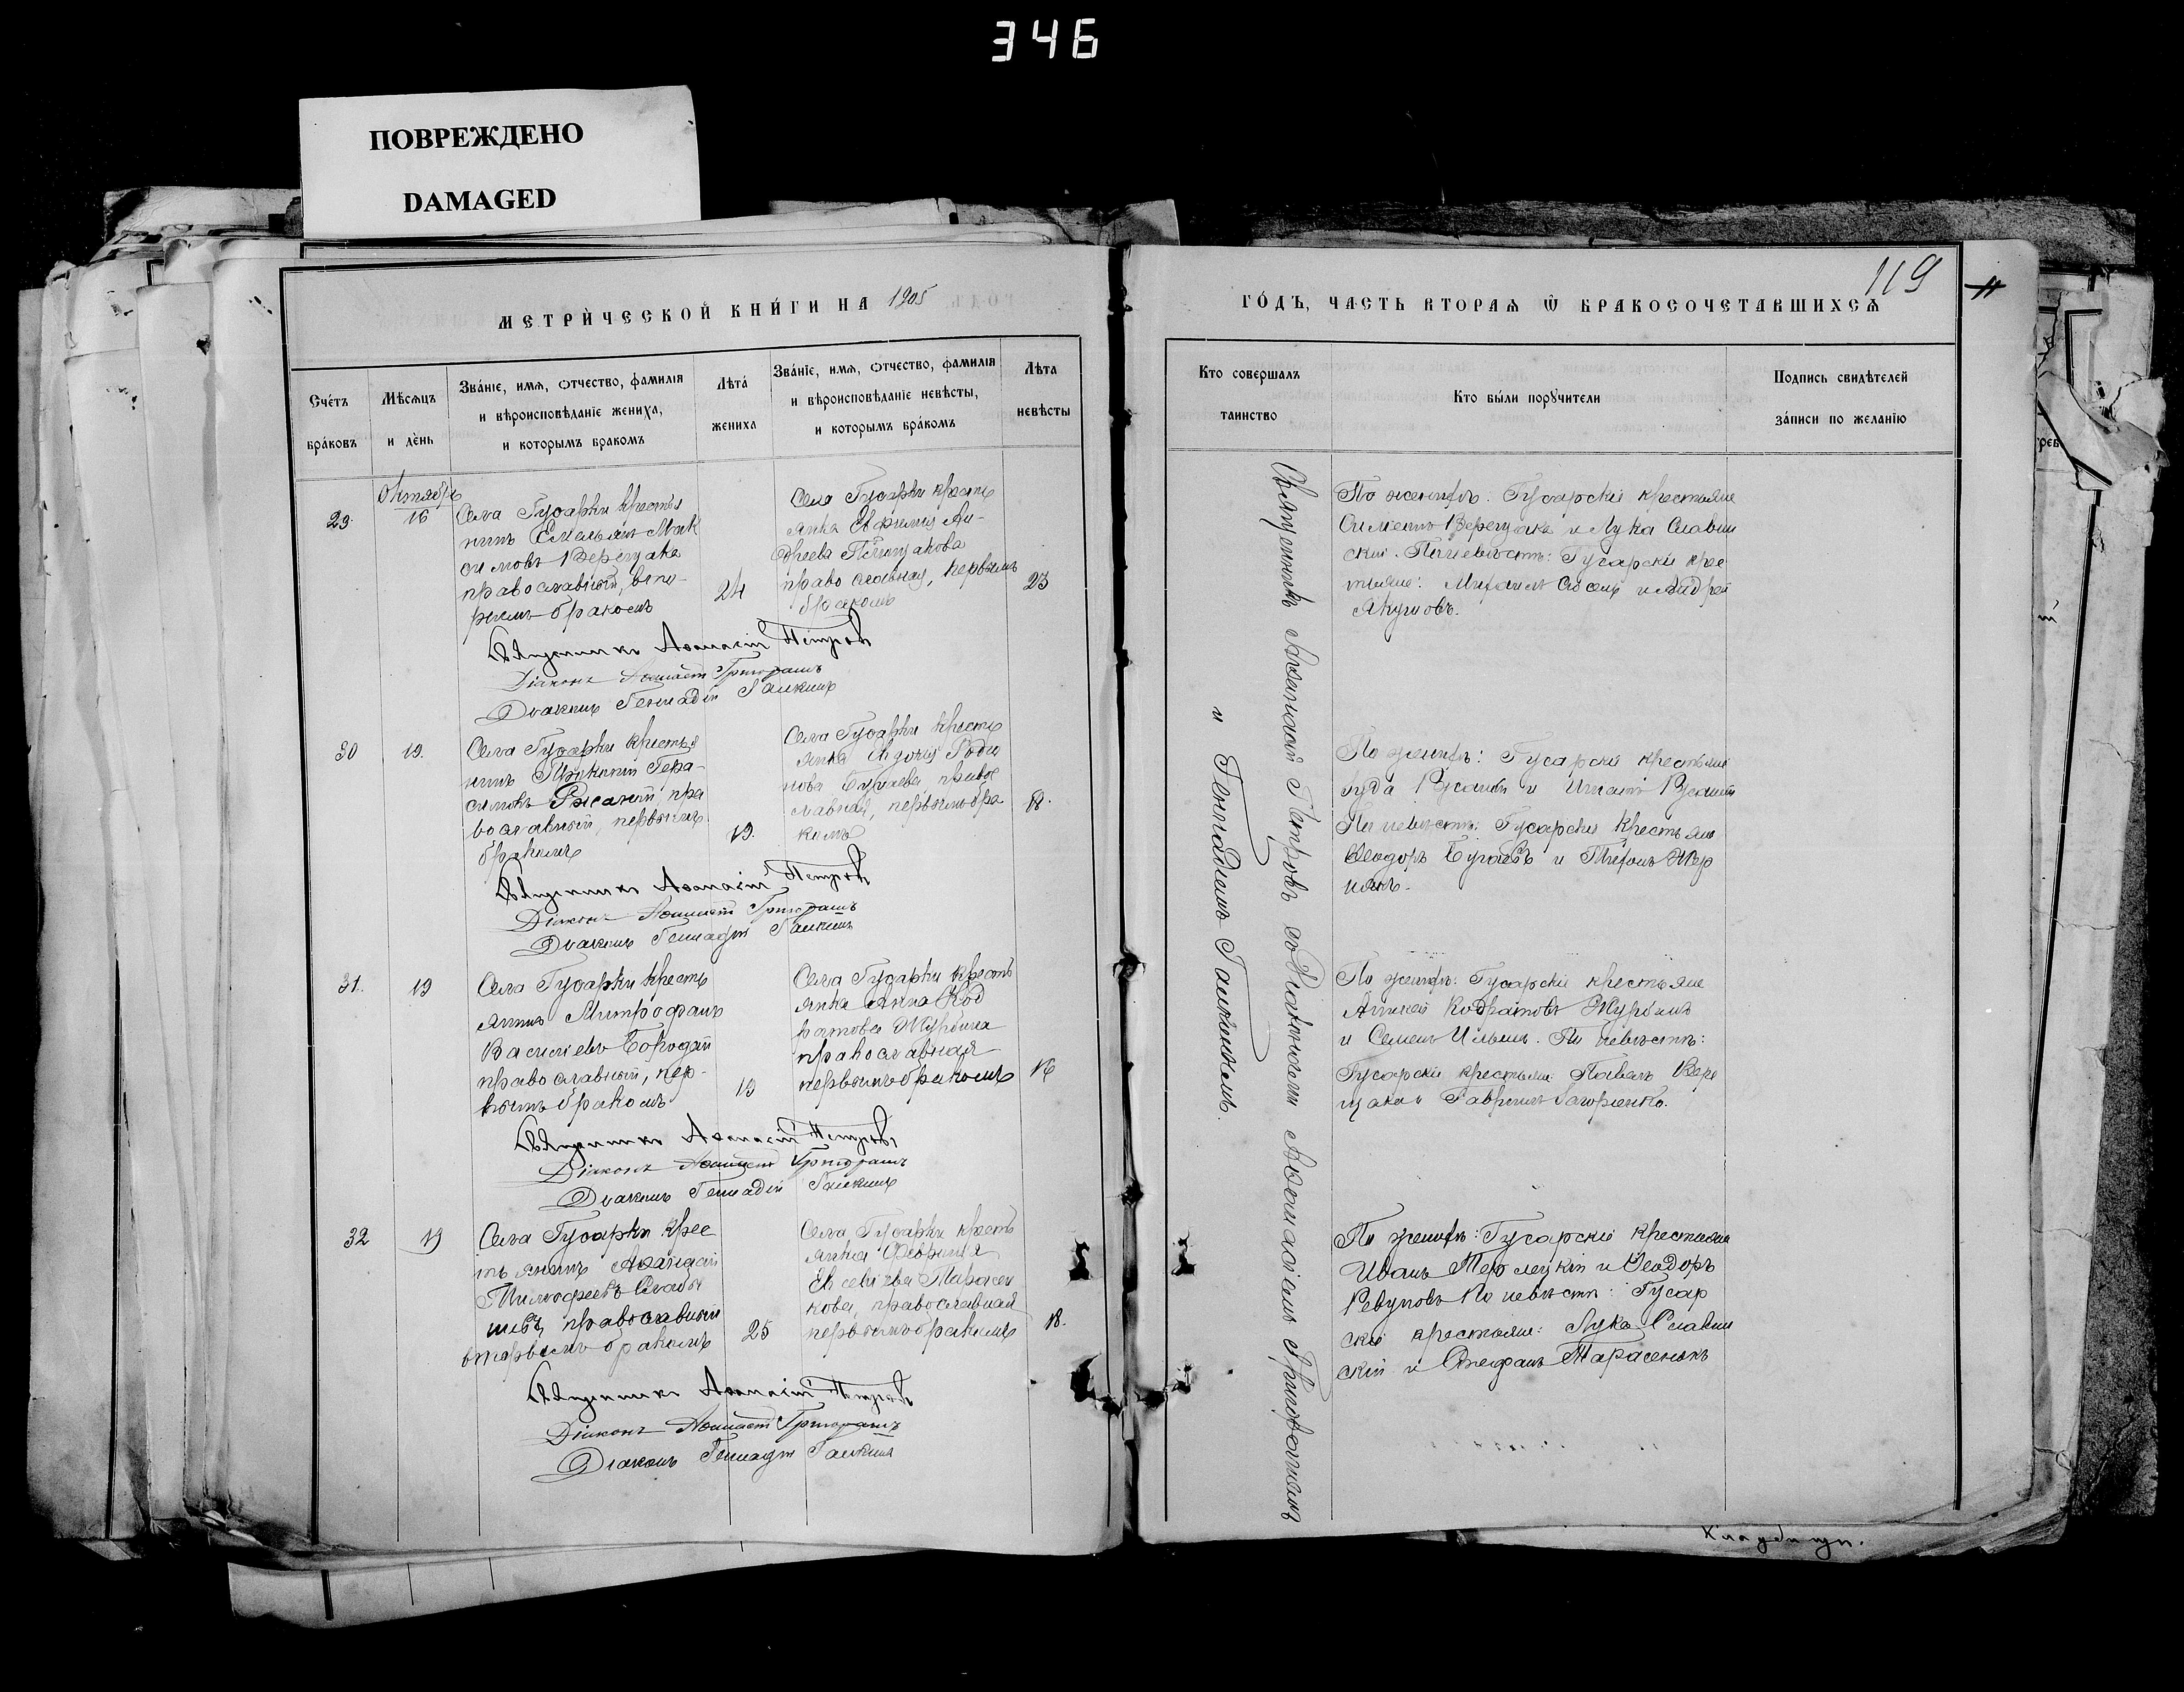 346
ПОВРЕЖДЕНО
DAMAGED
МЕТРИ́ЧЕСКОЙ КНИ́ГИ НА 1905
Сче́тъ
бра́ковъ
Мѣсяцъ
и де́нь
Зва́нїе, имя, отчество, фамилїя
и вѣроисповѣданїе жениха,
и которымъ бракомъ
Лѣта́
жениха
Зва́нїе, имя, отчество, фамилїя
и вѣроисповѣданїе невѣсты,
и которымъ бра́комъ
Лѣта
невѣсты
29.
Октября
16
Села Гусарки крестья
нинъ Емельянъ Мак
симовъ Верещака
православный, вто-
рымъ бракомъ
24
Села Гусарки кресть
янка Евфимія Ан-
дреева
православная, первымъ
бракомъ
23
Священникъ Аѳанасій Петровъ
Діаконъ Григорашъ
Діаконъ Геннадій Галкинъ
30
19.
Села Гусарки крестья
нинъ Гера-
симовъ Ржаной, пра
вославный, первымъ
бракомъ
19.
Села Гусарки кресть
янка Роди
нова Бугаева правос
лавная, первымъ бра
комъ
18.
Священникъ Аѳанасій Петровъ
Діаконъ Григорашъ
Діаконъ Геннадій Галкинъ
31.
19
Села Гусарки кресть
янинъ Митрофанъ
Васильевъ Бородай
православный, пер-
вымъ бракомъ
19
Села Гусарки кресть
янка Анна Код
ратова Журбина
православная
первымъ бракомъ
16
Священникъ Аѳанасій Петровъ
Діаконъ Григорашъ
Діаконъ Геннадій Галкинъ
32
19
Села Гусарки крес
тьянинъ
Тимофеевъ
православный
вторымъ бракомъ
25
Села Гусарки кресть
янка Феврония
Евсевіева Тарасен
кова, православная
первымъ бракомъ
18.
Священникъ Аѳанасій Петровъ
Діаконъ Григорашъ
Діаконъ Геннадій Галкинъ
119
ГО́ДЪ, ЧАСТЬ ВТОРАЯ Ѿ БРАКОСОЧЕТАВШИХСЯ
Кто совершалъ
таинство
Кто бы́ли пору́чители
Подпись свидѣтелей
за́писи по желанїю
Священникъ Аѳанасій Петровъ съ Діаконами Григорашемъ
и Геннадіемъ Галкинымъ.
По женихѣ: Гусарскіе крестьяне
Симеонъ Верещака и Лука Славин
скій. По невѣстѣ: Гусарскіе крес
тьяне: Михаилъ и Андрей
Якушовъ.
По женихѣ: Гусарскіе крестьяне
Іуда Ржаной и Игнатъ Ржаной
По невѣстѣ: Гусарскіе крестьяне
Ѳеодоръ Бугаевъ и
По женихѣ: Гусарскіе крестьяне
Алексей Кодратовъ Журбинъ
и Семенъ Ильинъ. По невѣстѣ:
Гусарскіе крестьяне Павелъ Вере
щака и Гавріилъ Загорулько.
По женихѣ: Гусарскіе крестьяне
Иванъ и Ѳеодоръ
Ревуновъ По невѣстѣ: Гусар
скіе крестьяне: Лука Славин
скій и Стефанъ Тарасенокъ